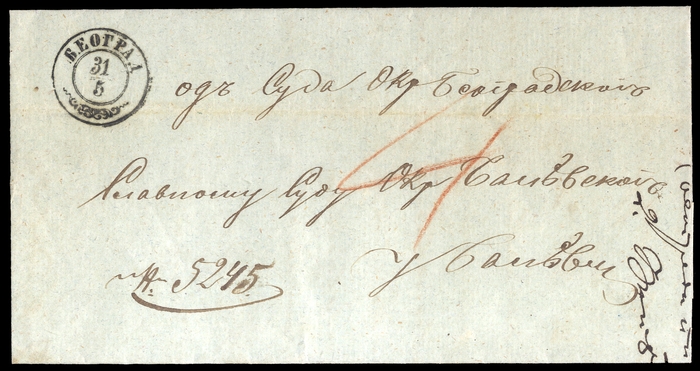 БЕОГРАД
31
5
одъ Суда Окр Београдскогъ
4
Славному Суду Окр Ваљевскогъ
у Ваљеви
№ 5245.